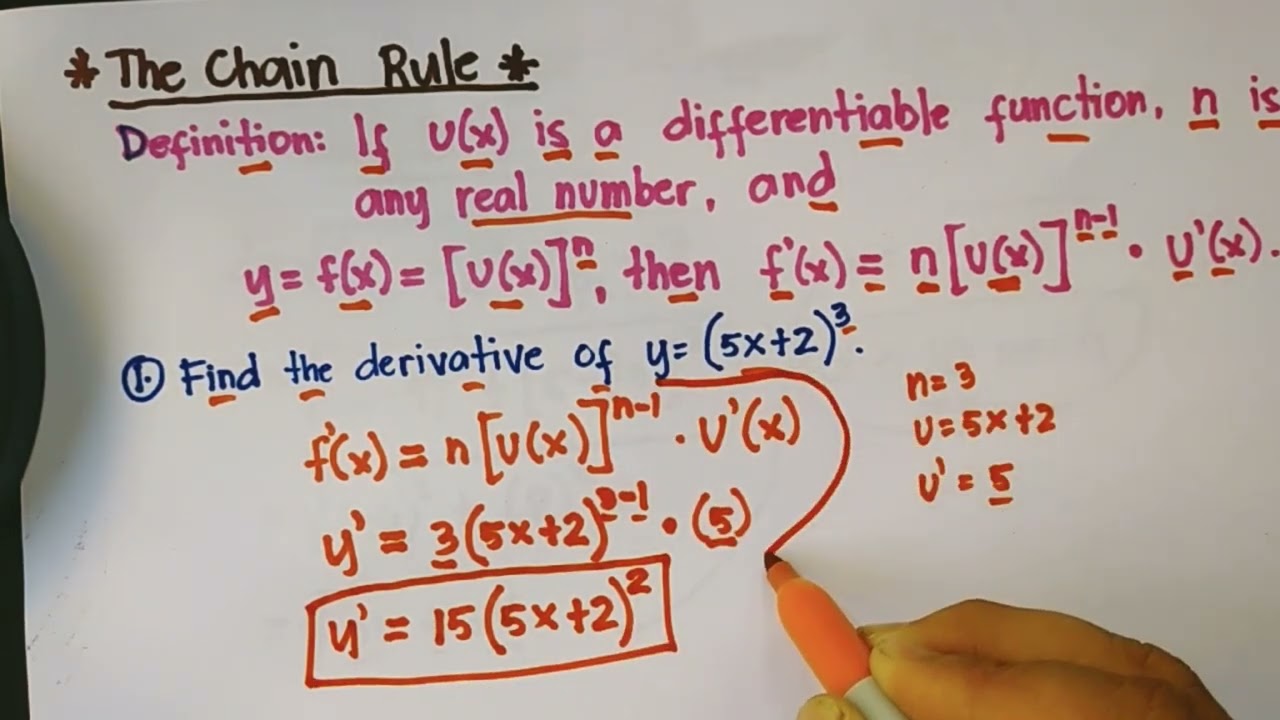 * The Chain Rule *
Definition: If U(x) is a differentiable function, n is
any real number, and
y = f(x) = [U(x)]ⁿ, then f'(x) = n[U(x)]ⁿ⁻¹ · U'(x).
①. Find the derivative of y = (5x+2)³.
f'(x) = n[U(x)]ⁿ⁻¹ · U'(x)
y' = 3(5x+2)³⁻¹ · (5)
y' = 15(5x+2)²
n = 3
U = 5x+2
U' = 5